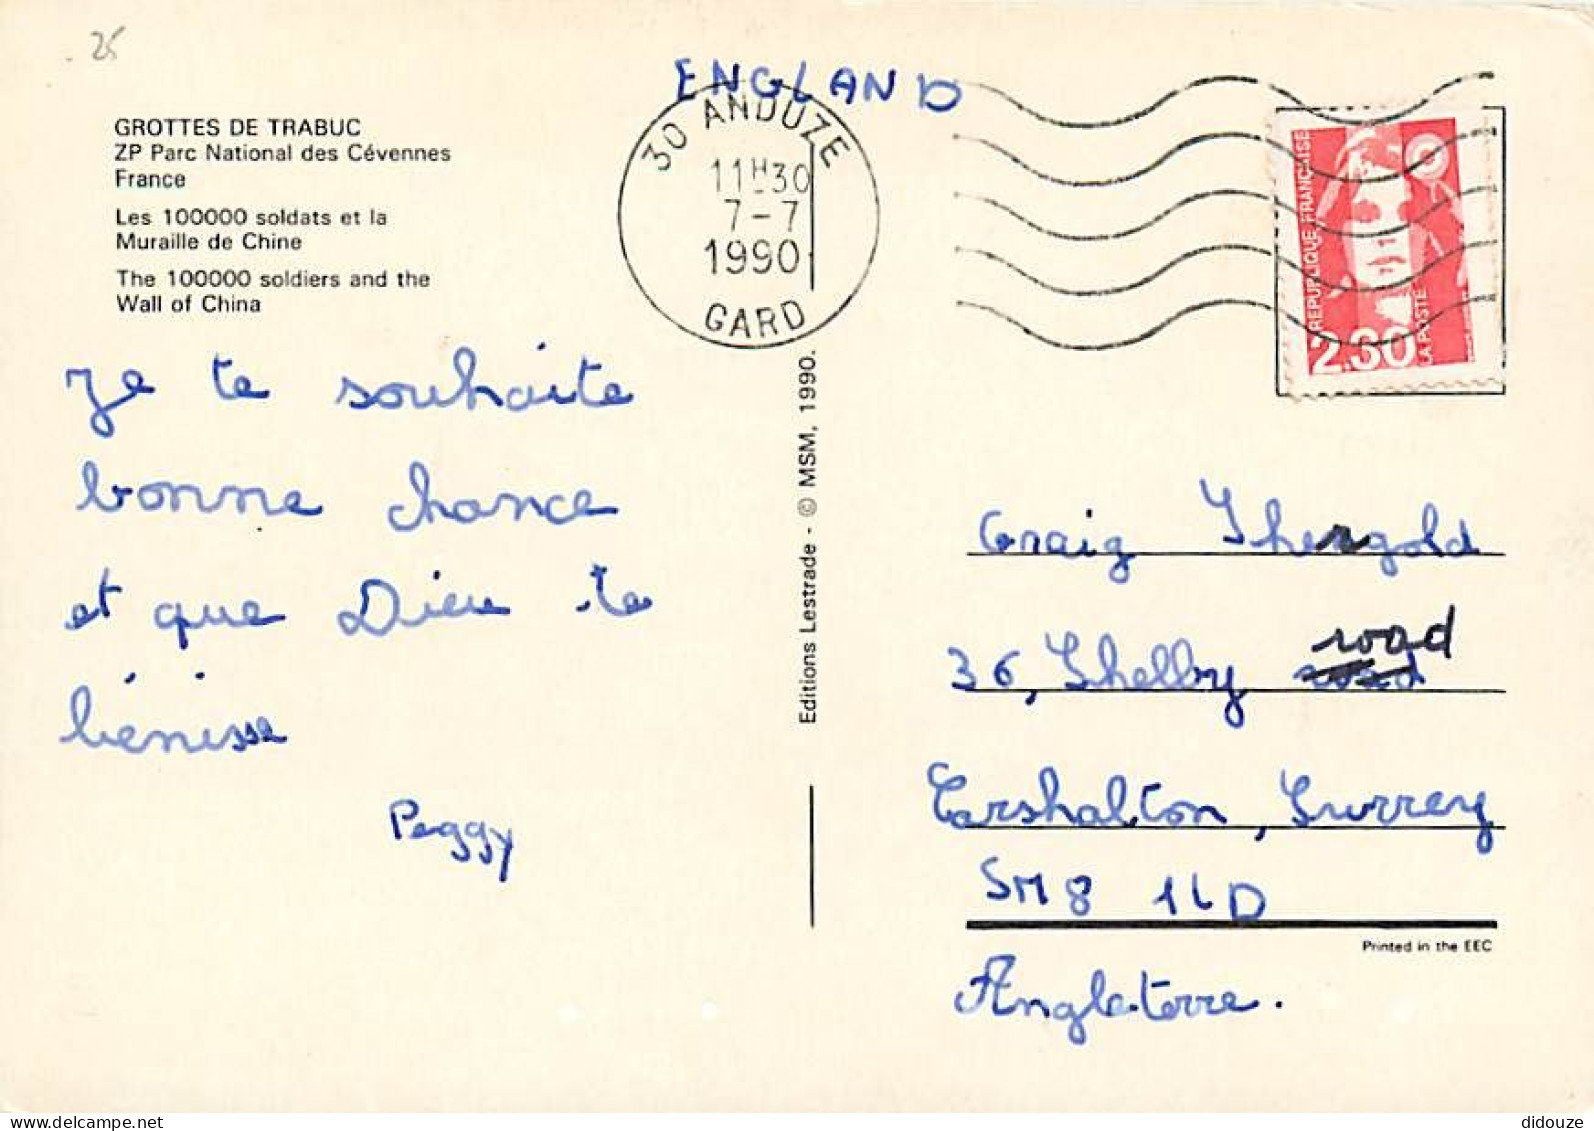 25
ENGLAND
GROTTES DE TRABUC
ZP Parc National des Cévennes
France
Les 100000 soldats et la
Muraille de Chine
The 100000 soldiers and the
Wall of China
30 ANDUZE
11H30
7-7
1990
GARD
REPUBLIQUE FRANÇAISE
2,30
LA POSTE
Je te souhaite
bonne chance
et que Dieu te
bénisse
Peggy
Editions Lestrade - © MSM, 1990.
Craig Shergold
road
36, Shelby road
Carshalton, Surrey
SM8 1LD
Printed in the EEC
Angleterre.
didouze